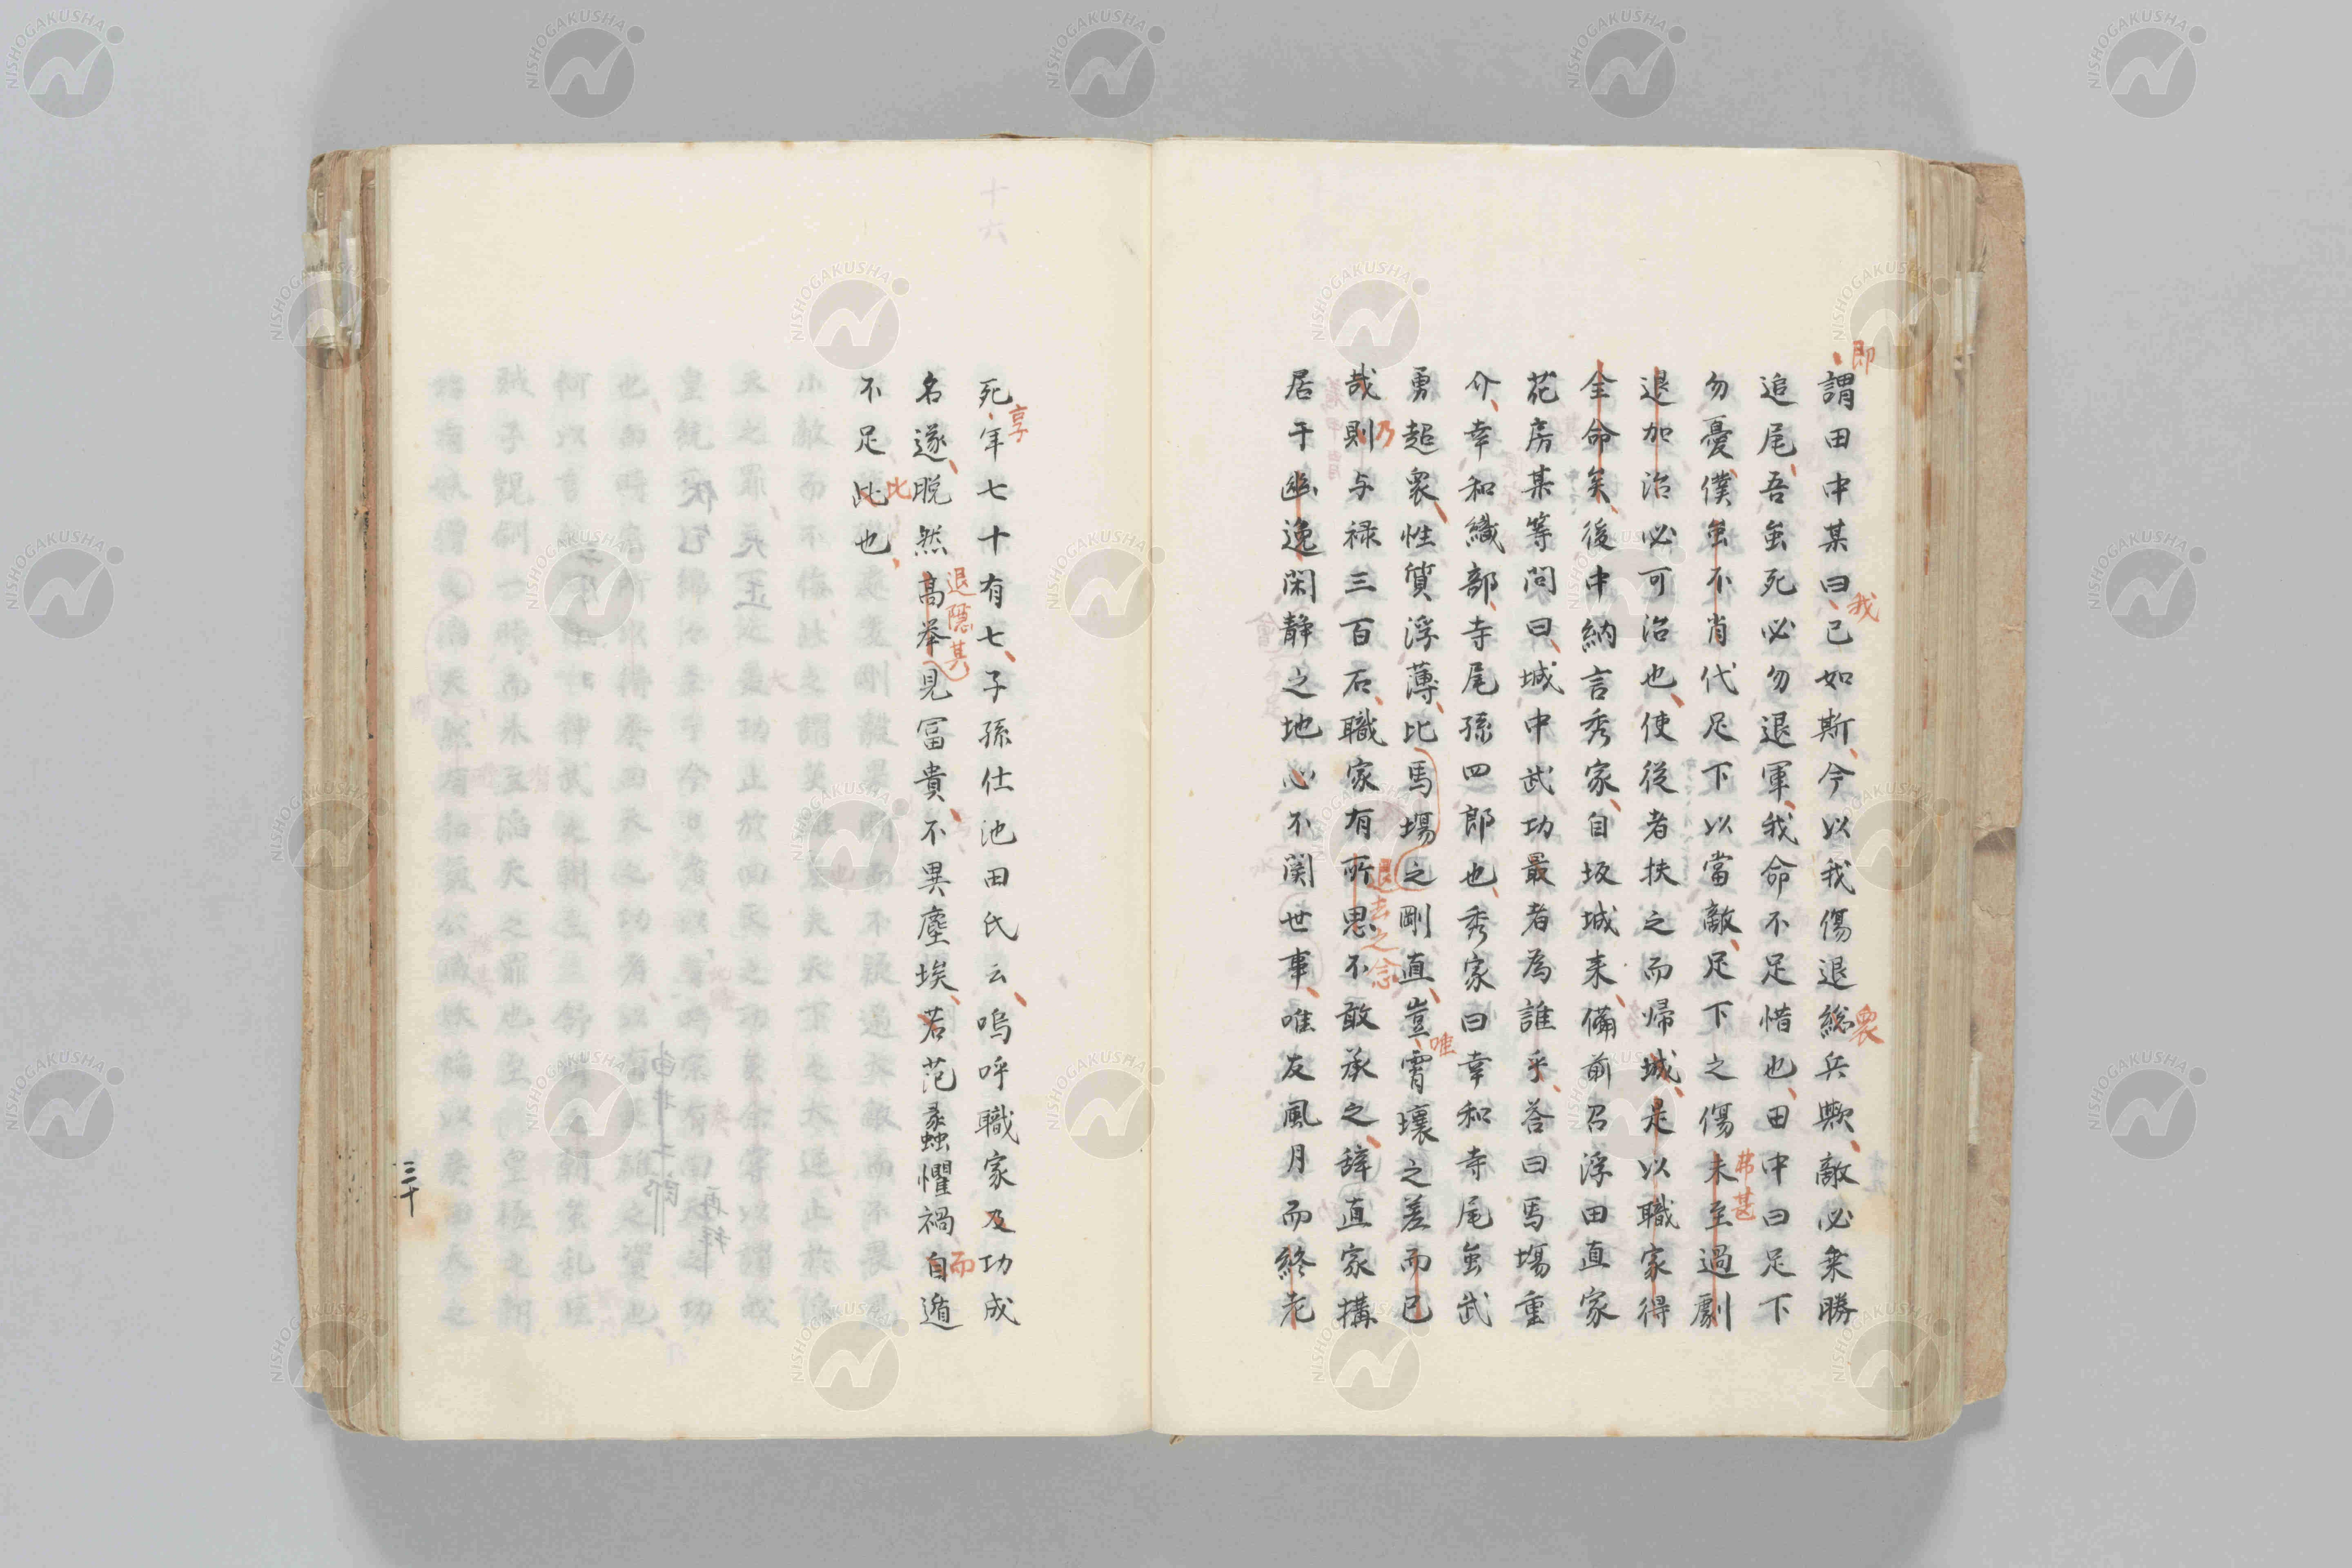 謂田中某曰已如斯今以我傷退総兵欺敵必乗勝
即
我
衆
追尾吾虽死必勿退軍我命不足惜也田中曰足下
勿憂僕虽不肖代足下以當敵足下之傷未至過劇
弗甚
退加治必可治也使従者扶之而帰城是以職家得
全命矣後中納言秀家自坂城来備前召浮田直家
花房某等問曰城中武功最者為誰乎答曰馬場重
介幸和織部寺尾孫四郎也秀家曰幸和寺尾虽武
勇超衆性質浮薄比馬場之剛直豈霄壤之差而已
唯
哉則与禄三百石職家有所思不敢承之辞直家搆
乃
退去之念
居于幽逸閑静之地心不関世事唯友風月而終老
死年七十有七子孫仕池田氏云嗚呼職家及功成
享
名遂脱然高挙見冨貴不異塵埃若范蠡懼禍自遁
退隠其
而
不足此也
比
三十
NISHOGAKUSHA